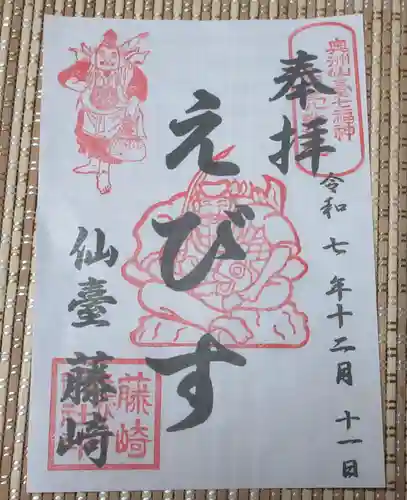 奉拝
奥州仙臺七福神
令和七年十二月十一日
えびす
仙臺 藤崎
藤崎